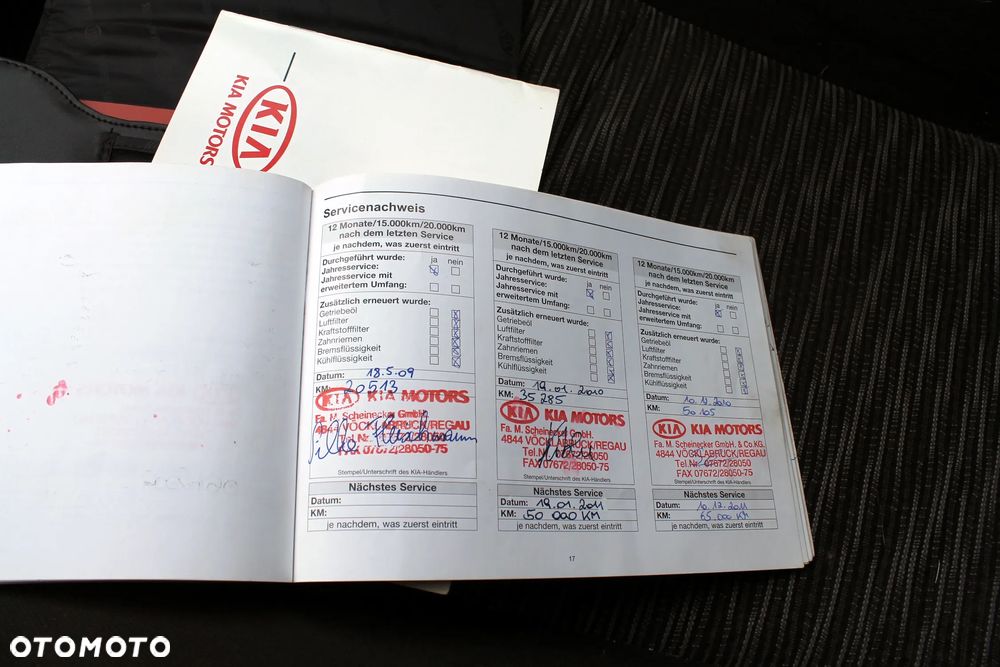 KIA
KIA MOTORS
Servicenachweis
12 Monate/15.000km/20.000km
nach dem letzten Service
je nachdem, was zuerst eintritt
Durchgeführt wurde: ja nein
Jahresservice:
Jahresservice mit
erweitertem Umfang:
Zusätzlich erneuert wurde:
Getriebeöl
Luftfilter
Kraftstofffilter
Zahnriemen
Bremsflüssigkeit
Kühlflüssigkeit
Datum: 18.5.09
KM: 20513
KIA KIA MOTORS
Fa. M. Scheinecker GmbH.
4844 VÖCKLABRUCK/REGAU
Tel.Nr. 07672/28050
FAX 07672/28050-75
Stempel/Unterschrift des KIA-Händlers
Nächstes Service
Datum:
KM:
je nachdem, was zuerst eintritt
12 Monate/15.000km/20.000km
nach dem letzten Service
je nachdem, was zuerst eintritt
Durchgeführt wurde: ja nein
Jahresservice:
Jahresservice mit
erweitertem Umfang:
Zusätzlich erneuert wurde:
Getriebeöl
Luftfilter
Kraftstofffilter
Zahnriemen
Bremsflüssigkeit
Kühlflüssigkeit
Datum: 19.01.2010
KM: 35285
KIA KIA MOTORS
Fa. M. Scheinecker GmbH.
4844 VÖCKLABRUCK/REGAU
Tel.Nr. 07672/28050
FAX 07672/28050-75
Stempel/Unterschrift des KIA-Händlers
Nächstes Service
Datum: 19.01.2011
KM: 50 000 KM
je nachdem, was zuerst eintritt
12 Monate/15.000km/20.000km
nach dem letzten Service
je nachdem, was zuerst eintritt
Durchgeführt wurde: ja nein
Jahresservice:
Jahresservice mit
erweitertem Umfang:
Zusätzlich erneuert wurde:
Getriebeöl
Luftfilter
Kraftstofffilter
Zahnriemen
Bremsflüssigkeit
Kühlflüssigkeit
Datum: 10.12.2010
KM: 50105
KIA KIA MOTORS
Fa. M. Scheinecker GmbH. & Co.KG.
4844 VÖCKLABRUCK/REGAU
Tel.Nr. 07672/28050
FAX 07672/28050-75
Stempel/Unterschrift des KIA-Händlers
Nächstes Service
Datum: 10.12.2011
KM: 65 000 KM
je nachdem, was zuerst eintritt
17
OTOMOTO